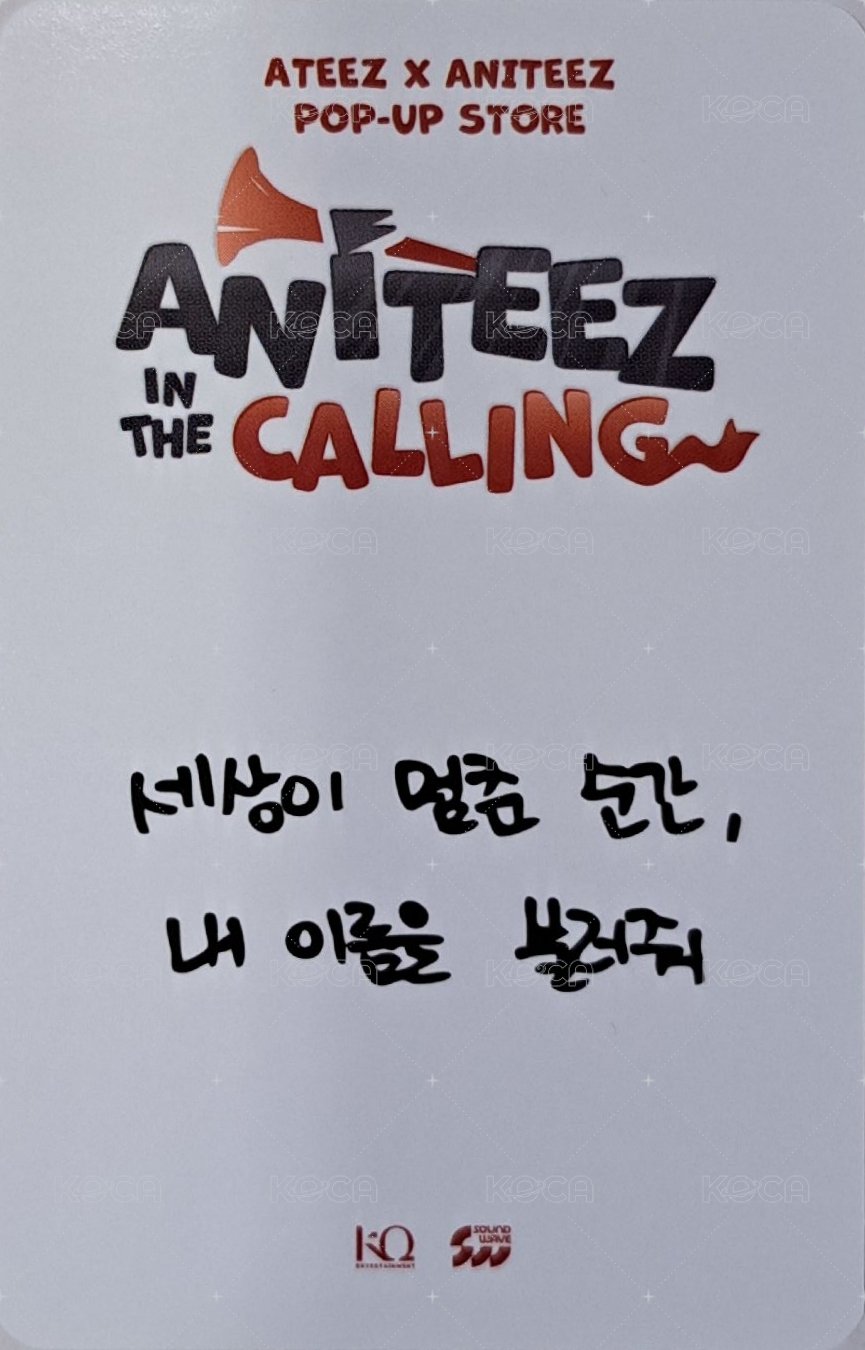 ATEEZ X ANITEEZ
POP-UP STORE
ANITEEZ
IN
THE CALLING
세상이 멈춘 순간,
내 이름을 불러줘
KQ
ENTERTAINMENT
SOUND
WAVE
KOCA